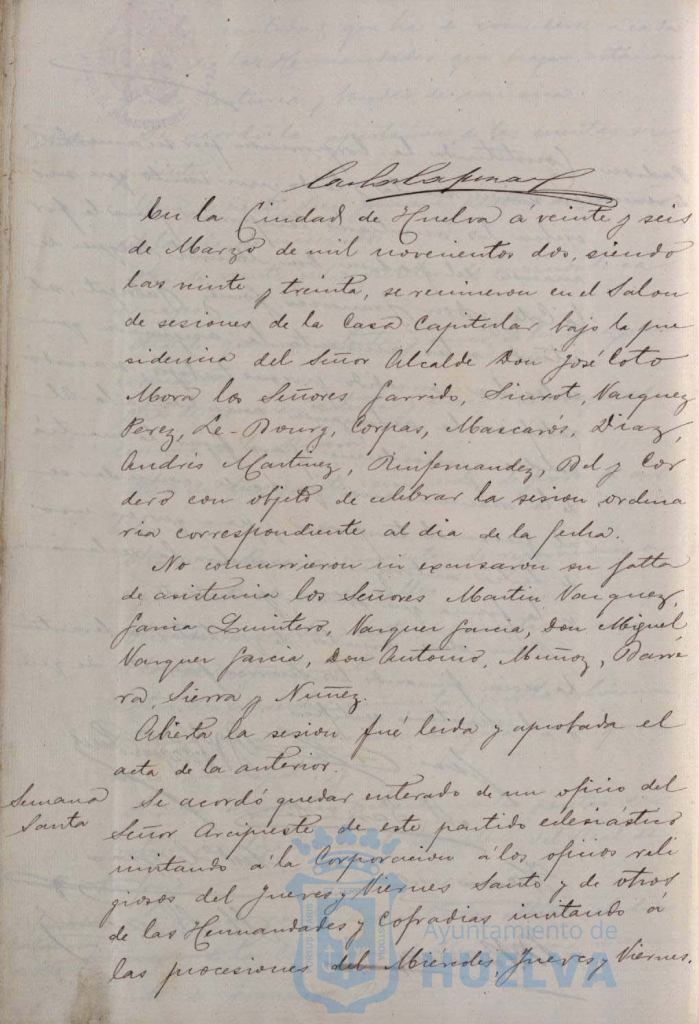 En la Ciudad de Huelva á veinte y seis
de Marzo de mil novecientos dos, siendo
las veinte y treinta, se reunieron en el Salon
de sesiones de la Casa Capitular bajo la pre
sidencia del Señor Alcalde Don José Coto
Mora los Señores Garrido, Siurot, Vazquez
Perez, Le-Bourg, Corpas, Mascarós, Diaz,
Andrés Martinez, Ruifernandez, Bel y Cor
dero con objeto de celebrar la sesion ordina
ria correspondiente al dia de la fecha.
No concurrieron ni excusaron su falta
de asistencia los Señores Martin Vazquez,
Garcia Quintero, Vazquez Garcia, Don Miguel
Vazquez Garcia, Don Antonio, Muñoz, Barre
ra, Sierra y Nuñez.
Abierta la sesion fué leida y aprobada el
acta de la anterior.
Semana
Santa
Se acordó quedar enterado de un oficio del
Señor Arcipreste de este partido eclesiástico
invitando á la Corporacion á los oficios reli
giosos del Jueves y Viernes Santo y de otros
de las Hermandades y Cofradias invitando á
las procesiones del Miercoles, Jueves y Viernes.
Ayuntamiento de
HUELVA